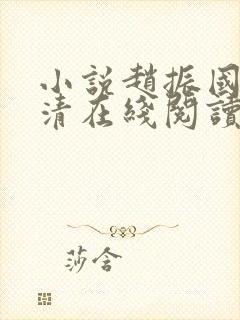 小説趙振國
清在綫閱讀
莎含